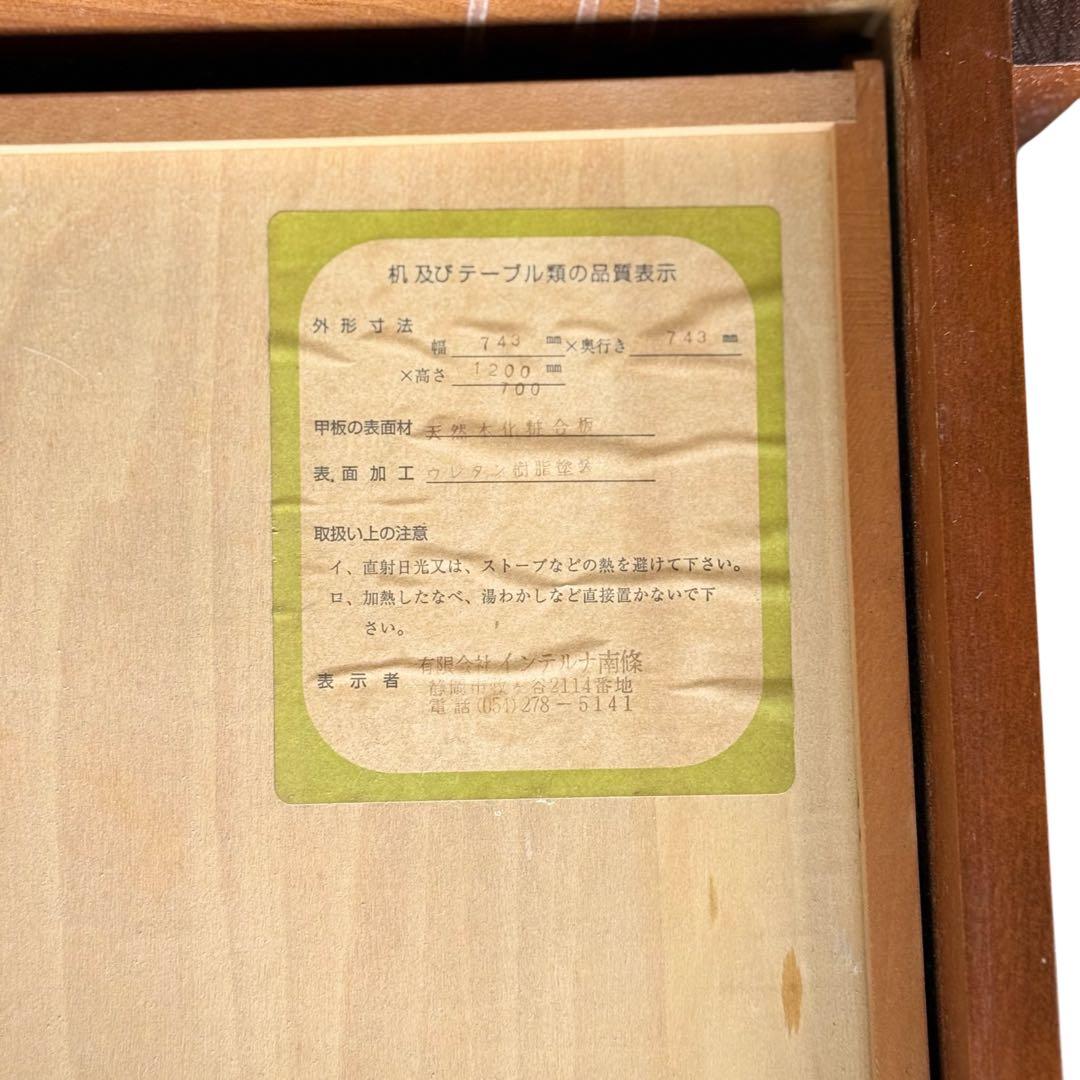 机及びテーブル類の品質表示
外形寸法
幅 743 mm ×奥行き 743 mm
×高さ 1200 mm
700
甲板の表面材 天然木化粧合板
表面加工 ウレタン樹脂塗装
取扱い上の注意
イ、直射日光又は、ストーブなどの熱を避けて下さい。
ロ、加熱したなべ、湯わかしなど直接置かないで下
さい。
表示者 有限会社インテルナ南條
静岡市牧ヶ谷2114番地
電話(054)278-5141